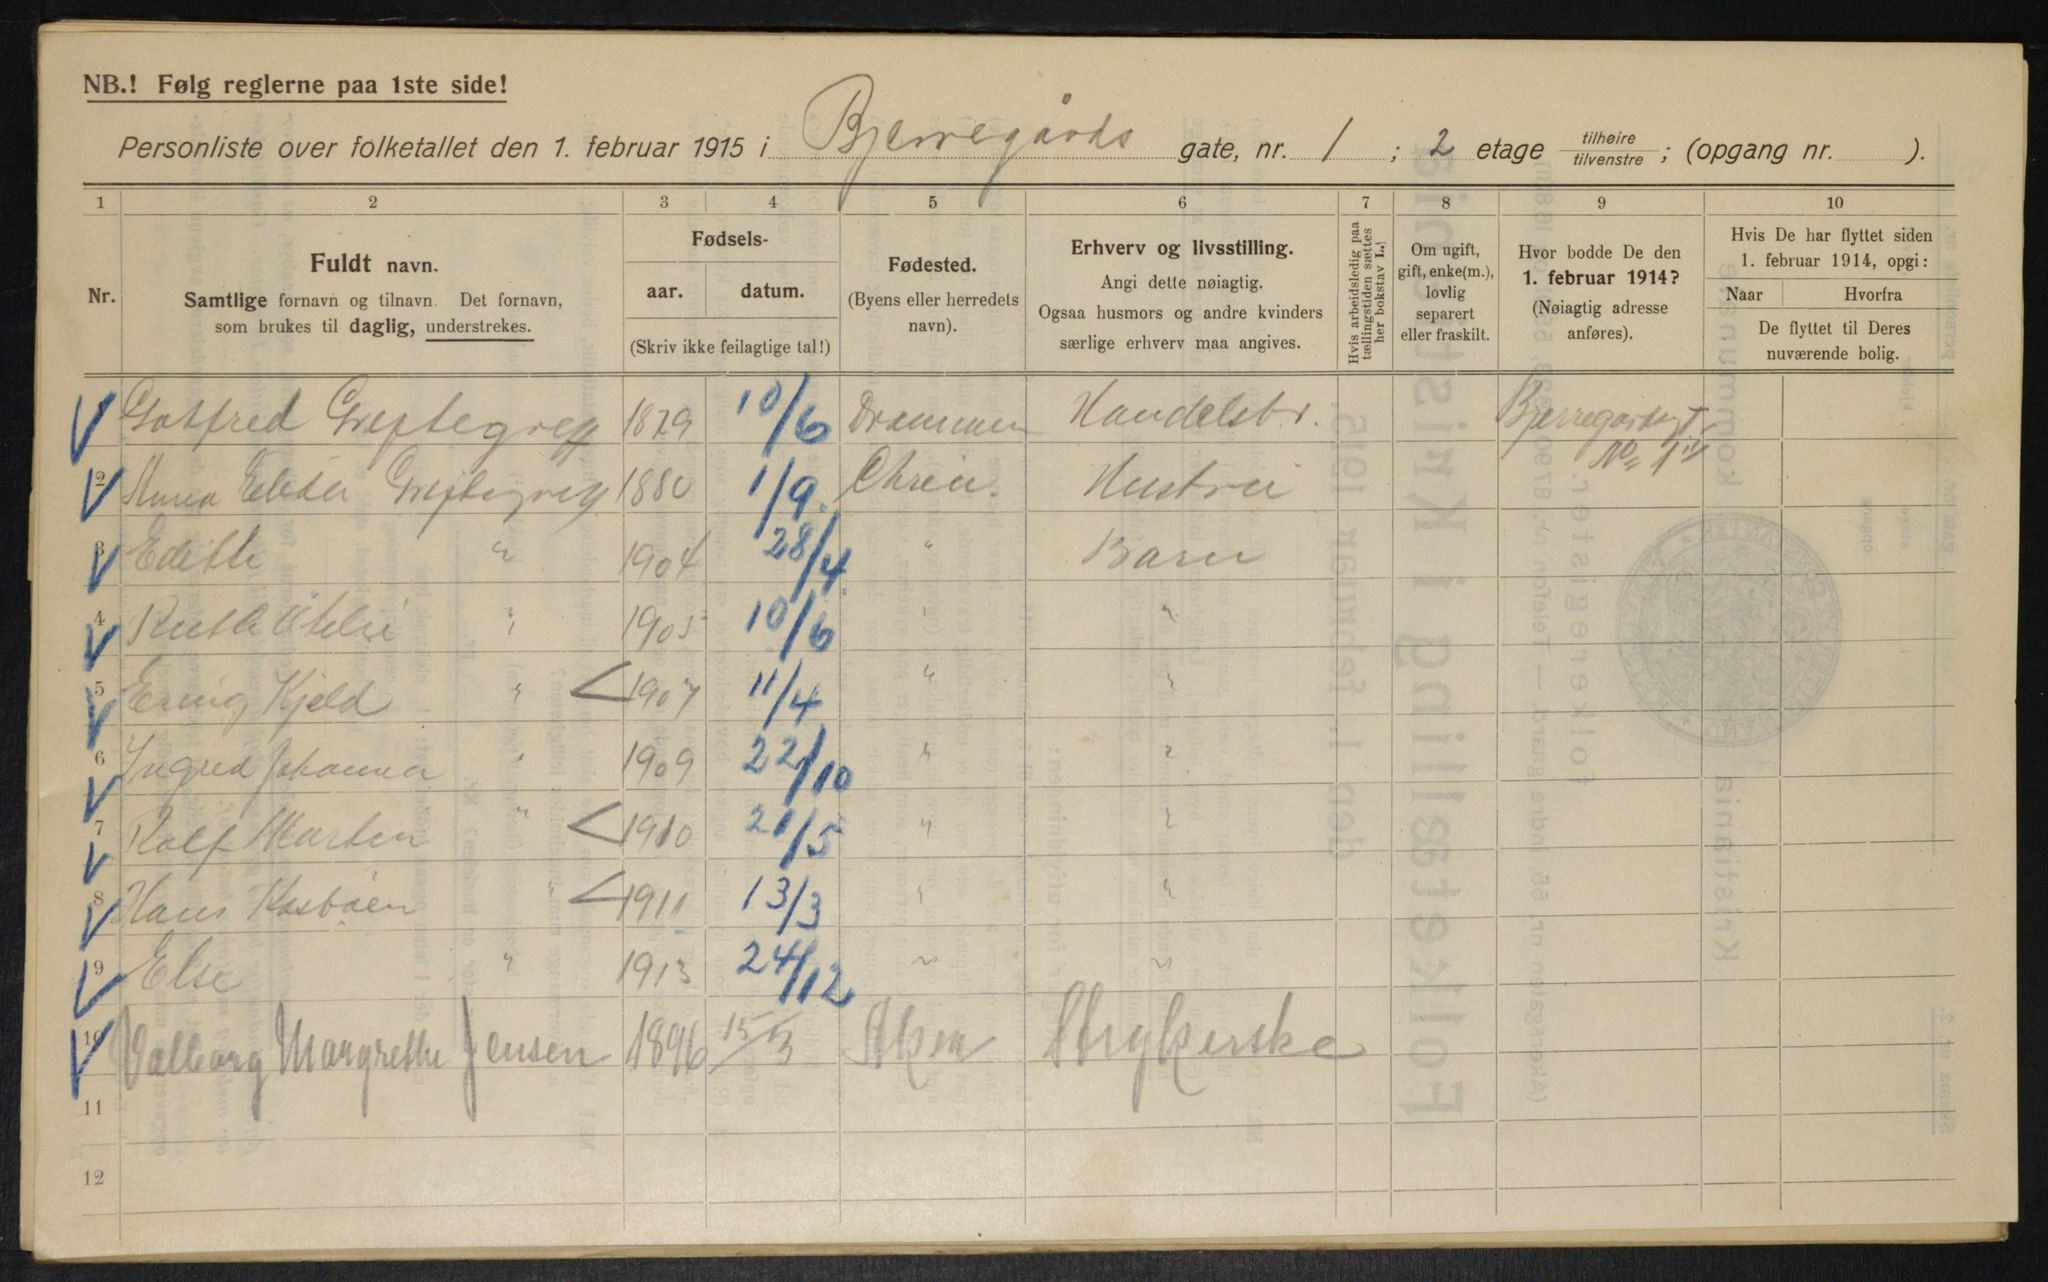 NB.! Følg reglerne paa 1ste side!
Personliste over folketallet den 1. februar 1915 i Bjerregårds gate, nr. 1 ; 2 etage tilhøire tilvenstre ; (opgang nr. ).
1 2 3 4 5 6 7 8 9 10
Nr.
Fuldt navn.
Samtlige fornavn og tilnavn. Det fornavn,
som brukes til daglig, understrekes.
Fødsels-
aar. datum.
(Skriv ikke feilagtige tal!)
Fødested.
(Byens eller herredets
navn).
Erhverv og livsstilling.
Angi dette nøiagtig.
Ogsaa husmors og andre kvinders
særlige erhverv maa angives.
Hvis arbeidsledig paa
tællingstiden sættes
her bokstav L.)
Om ugift,
gift, enke(m.),
lovlig
separert
eller fraskilt.
Hvor bodde De den
1. februar 1914?
(Nøiagtig adresse
anføres).
Hvis De har flyttet siden
1. februar 1914, opgi:
Naar Hvorfra
De flyttet til Deres
nuværende bolig.
Gotfred Greftegreff 1879 10/6 Drammen Handelsbr. Bjerregardsgt
No 1 IV
2 Anna Elida Greftegreff 1880 1/9. Chria. Hustru
3 Edith " 1904 28/4 " Barn
4 Ruth " 1905 10/6 " "
5 Erling Kjeld " < 1907 11/4 " "
6 Ingrid Johanna " 1909 22/10 " "
7 Rolf Martin " < 1910 21/5 " "
8 Hans " < 1911 13/3 " "
9 Else " 1913 24/12 " "
10 Valborg Margrethe Jensen 1896 15/3 Aker Strykerske
11
12